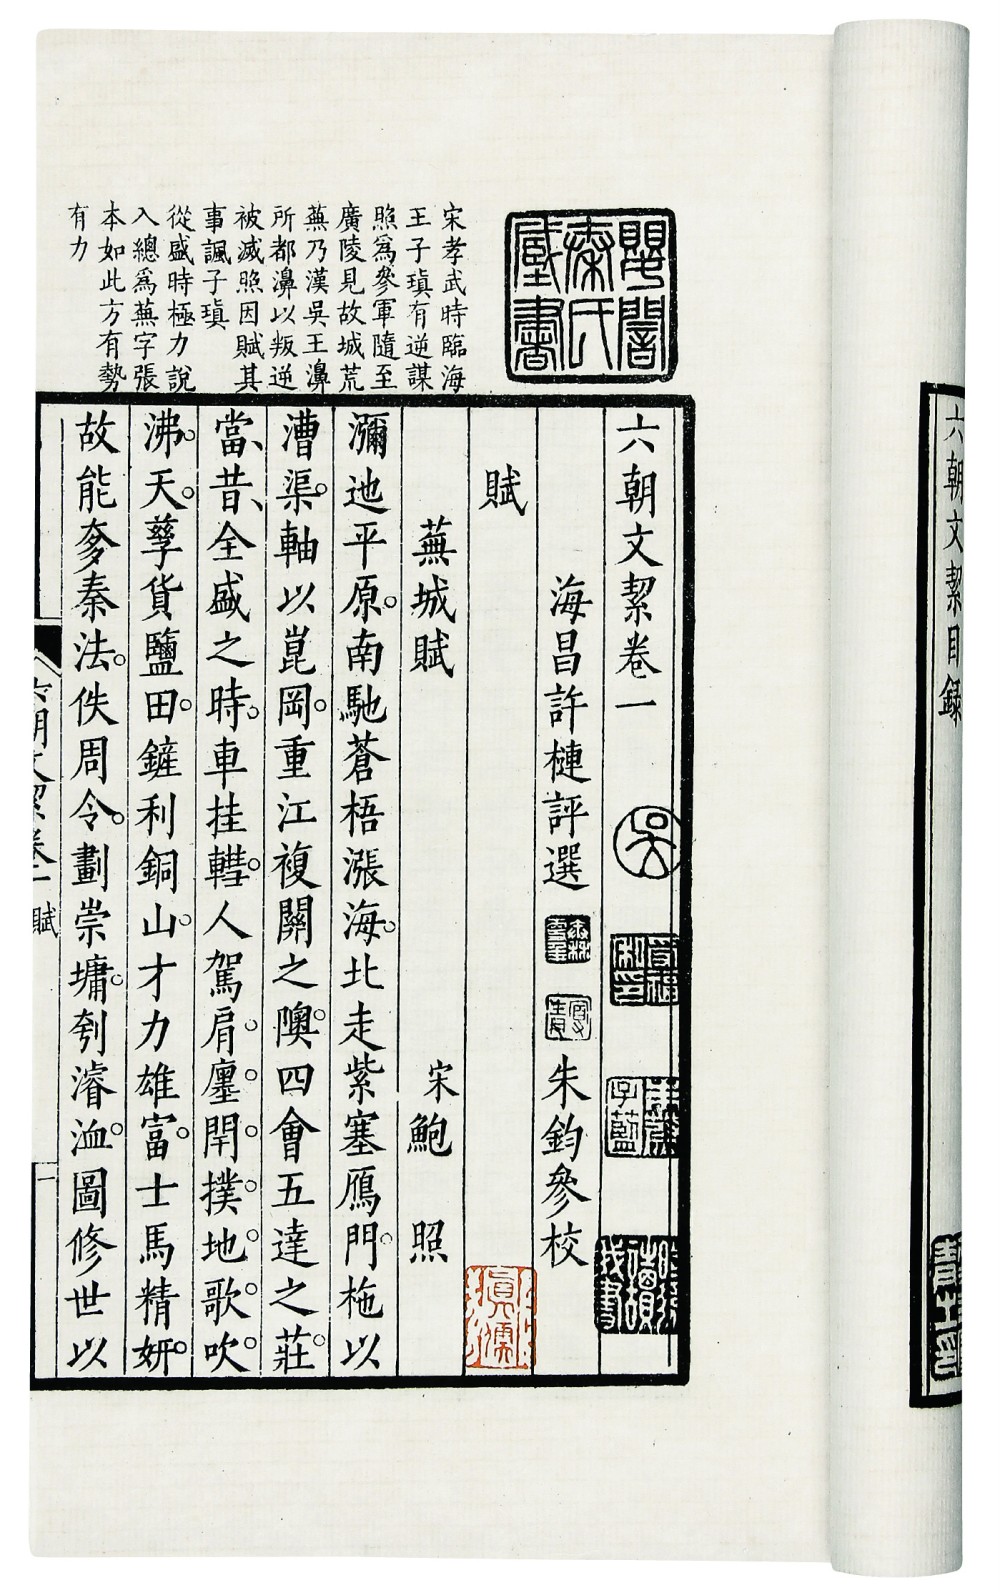 六朝文絜目録
六朝文絜卷一
海昌許槤評選
朱鈞參校
賦
蕪城賦
宋鮑照
瀰迆平原南馳蒼梧漲海北走紫塞鴈門柂以
漕渠軸以崑岡重江複關之隩四會五達之莊
當昔全盛之時車挂轊人駕肩廛閈撲地歌吹
沸天孳貨鹽田鏟利銅山才力雄富士馬精妍
故能奓秦法佚周令劃崇墉刳濬洫圖修世以
宋孝武時臨海
王子瑱有逆謀
照爲參軍隨至
廣陵見故城荒
蕪乃漢吳王濞
所都濞以叛逆
被滅照因賦其
事諷子瑱
從盛時極力說
入總爲蕪字張
本如此方有勢
有力
六朝文絜卷一
賦
一